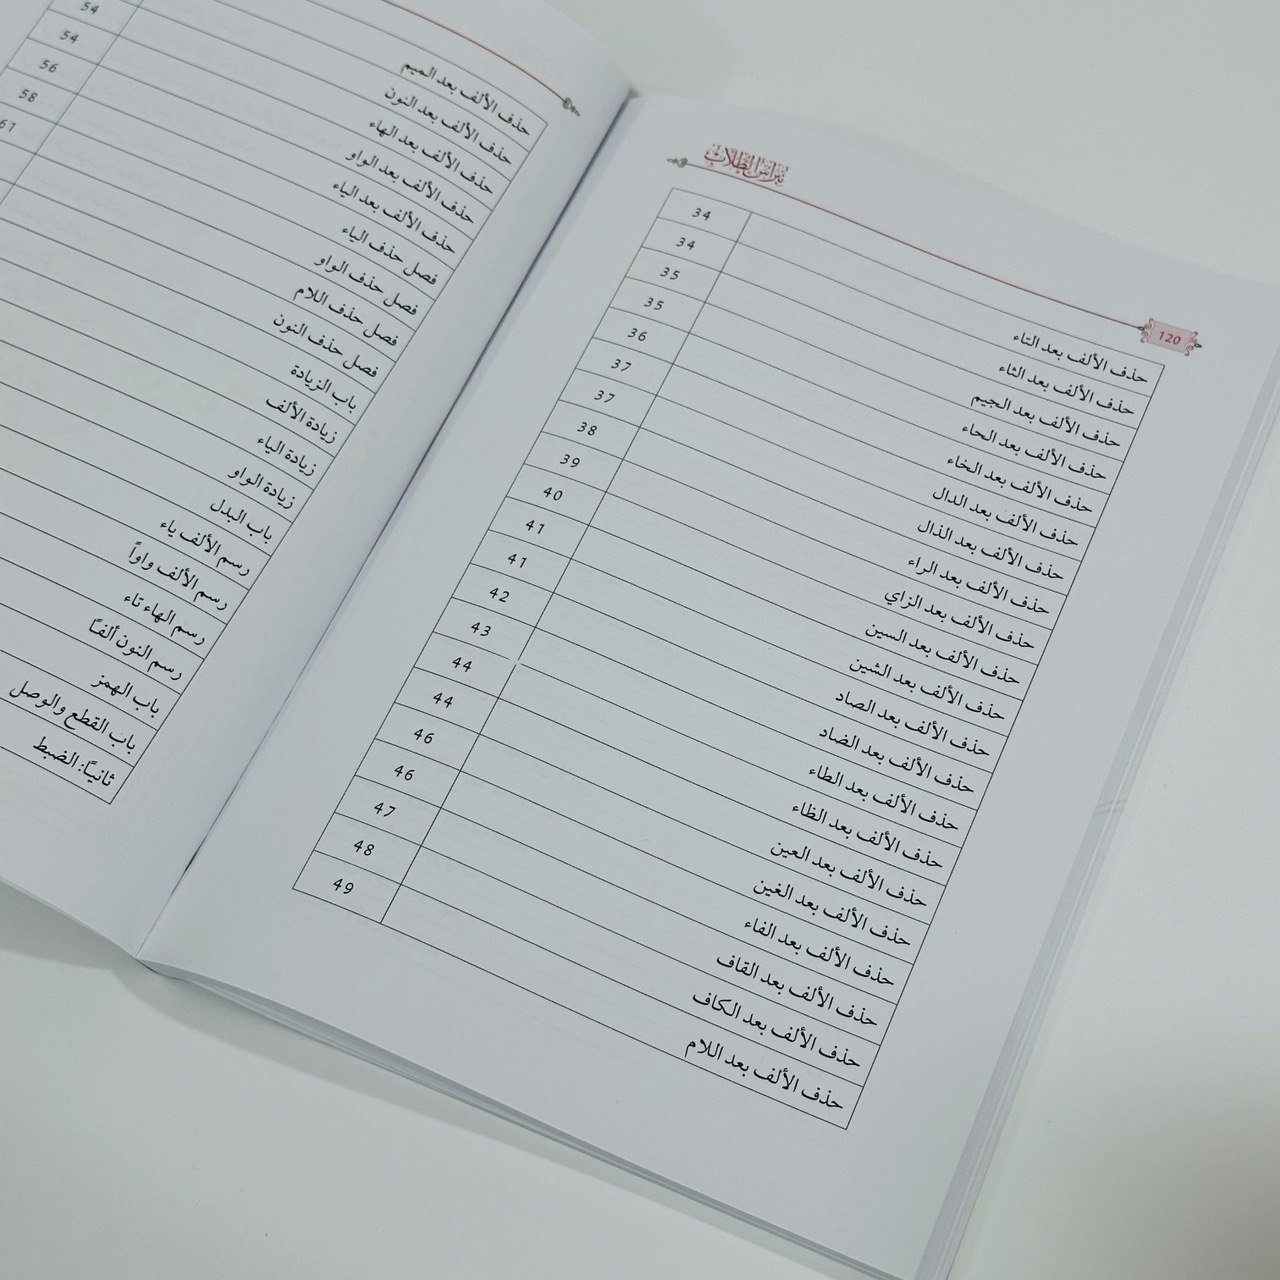 نبراس الطلاب
120
حذف الألف بعد التاء 34
حذف الألف بعد الثاء 34
حذف الألف بعد الجيم 35
حذف الألف بعد الحاء 35
حذف الألف بعد الخاء 36
حذف الألف بعد الدال 37
حذف الألف بعد الذال 37
حذف الألف بعد الراء 38
حذف الألف بعد الزاي 39
حذف الألف بعد السين 40
حذف الألف بعد الشين 41
حذف الألف بعد الصاد 41
حذف الألف بعد الضاد 42
حذف الألف بعد الطاء 43
حذف الألف بعد الظاء 44
حذف الألف بعد العين 44
حذف الألف بعد الغين 46
حذف الألف بعد الفاء 46
حذف الألف بعد القاف 47
حذف الألف بعد الكاف 48
حذف الألف بعد اللام 49
حذف الألف بعد الميم
حذف الألف بعد النون
حذف الألف بعد الهاء 54
حذف الألف بعد الواو 54
حذف الألف بعد الياء 56
فصل حذف الياء 58
فصل حذف الواو 61
فصل حذف اللام
فصل حذف النون
باب الزيادة
زيادة الألف
زيادة الياء
زيادة الواو
باب البدل
رسم الألف ياء
رسم الألف واواً
رسم الهاء تاء
رسم النون ألفًا
باب الهمز
باب القطع والوصل
ثانيًا: الضبط